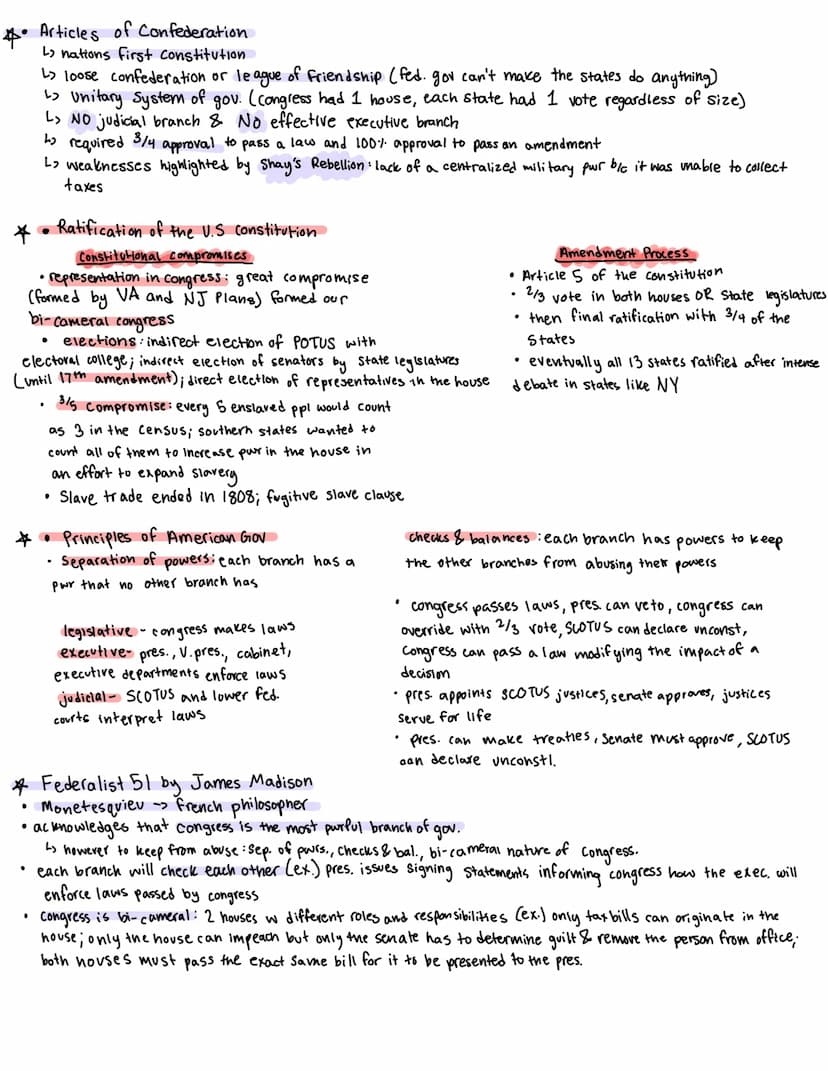 ☆• Articles of Confederation
↳ nations First Constitution
↳ loose confederation or league of Friendship (fed. gov can't make the states do anything)
↳ Unitary System of gov. (congress had 1 house, each state had 1 vote regardless of size)
↳ NO judicial branch & NO effective executive branch
↳ required 3/4 approval to pass a law and 100% approval to pass an amendment
↳ weaknesses highlighted by Shay's Rebellion: lack of a centralized military pwr b/c it was unable to collect
taxes
☆ • Ratification of the U.S constitution
Constitutional compromises
• representation in congress: great compromise
(formed by VA and NJ Plans) formed our
bi-cameral congress
• elections: indirect election of POTUS with
electoral college; indirect election of senators by state legislatures
(until 17th amendment); direct election of representatives in the house
• 3/5 compromise: every 5 enslaved ppl would count
as 3 in the census; southern states wanted to
count all of them to increase pwr in the house in
an effort to expand slavery
• Slave trade ended in 1808; fugitive slave clause
Amendment Process
• Article 5 of the constitution
• 2/3 vote in both houses OR State legislatures
• then final ratification with 3/4 of the
States
• eventually all 13 states ratified after intense
debate in states like NY
☆ • Principles of American Gov
• Separation of powers: each branch has a
pwr that no other branch has
legislative - congress makes laws
executive- pres., v.pres., cabinet,
executive departments enforce laws
judicial- SCOTUS and lower fed.
courts interpret laws
checks & balances: each branch has powers to keep
the other branches from abusing their powers
• congress passes laws, pres. can veto, congress can
override with 2/3 vote, SCOTUS can declare unconst,
Congress can pass a law modifying the impact of a
decision
• pres. appoints SCOTUS justices, senate approves, justices
serve for life
• pres. can make treaties, Senate must approve, SCOTUS
can declare unconstl.
☆ Federalist 51 by James Madison
• Monetesquieu -> french philosopher
• acknowledges that congress is the most pwrful branch of gov.
↳ however to keep from abuse: sep. of pwrs., checks & bal., bi-cameral nature of Congress.
• each branch will check each other (ex.) pres. issues signing statements informing congress how the exec. will
enforce laws passed by congress
• congress is bi-cameral: 2 houses w different roles and responsibilities (ex.) only tax bills can originate in the
house; only the house can impeach but only the senate has to determine guilt & remove the person from office;
both houses must pass the exact same bill for it to be presented to the pres.